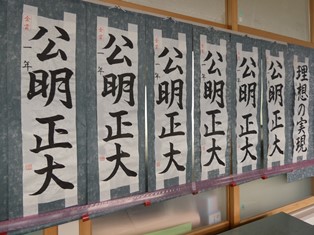 公明正大
一年
公明正大
一年
公明正大
公明正大
公明正大
公明正大
理想の実現